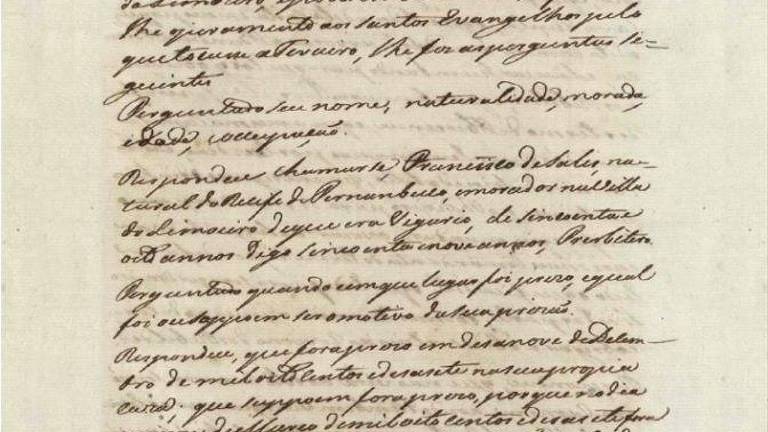 do Limoeiro,
lhe juramento aos santos Evangelhos pelo
que tocasse a Terceiro, lhe foi as perguntas se-
guintes
Perguntado seu nome, naturalidade, morada,
idade, occupação.
Respondeu chamarse Francisco de Sales, na-
tural do Recife de Pernambuco, e morador na Villa
do Limoeiro de que era Vigario, de sincoenta e
oito annos digo sincoenta e nove annos, Presbitero
Perguntado quando e em que lugar foi prezo, e qual
foi ou suppoem ser o motivo da sua prizão.
Respondeu, que fora prezo em desanove de Desem-
bro de mil oito centos e desasete na sua propria
caza, que suppoem fora prezo, porque no dia
de Março de mil oito centos e desasete fora